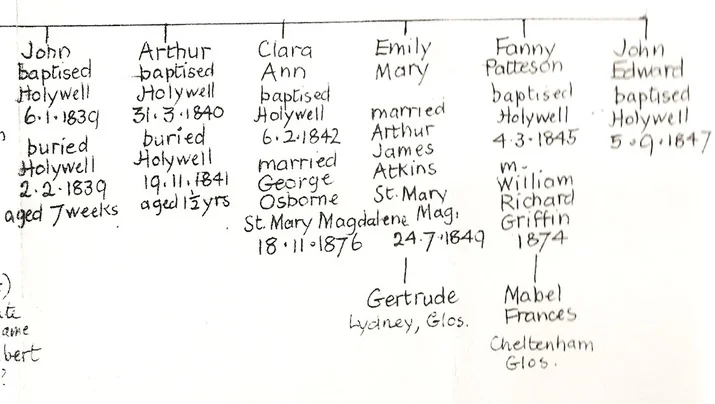 John
baptised
Holywell
6.1.1839
buried
Holywell
2.2.1839
aged 7 weeks
Arthur
baptised
Holywell
31.3.1840
buried
Holywell
19.11.1841
aged 1½ yrs
Clara
Ann
baptised
Holywell
6.2.1842
married
George
Osborne
St. Mary Magdalene
18.11.1876
Emily
Mary
married
Arthur
James
Atkins
St. Mary
Mag.
24.7.1849
Gertrude
Lydney, Glos.
Fanny
Patteson
baptised
Holywell
4.3.1845
m.
William
Richard
Griffin
1874
Mabel
Frances
Cheltenham
Glos.
John
Edward
baptised
Holywell
5.9.1847
bert
?